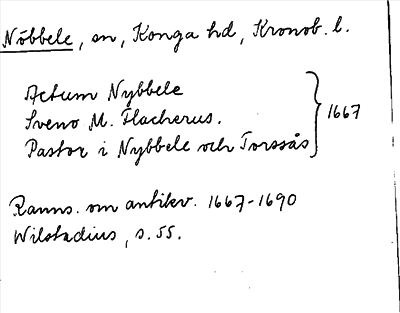 Nöbbele, sn, Konga hd, Kronob. l.
Actum Nybbele
Sveno M. Flacherus.
Pastor i Nybbele och Torssås
1667
Ranns. om antikv. 1667-1690
Wilstadius, s. 55.